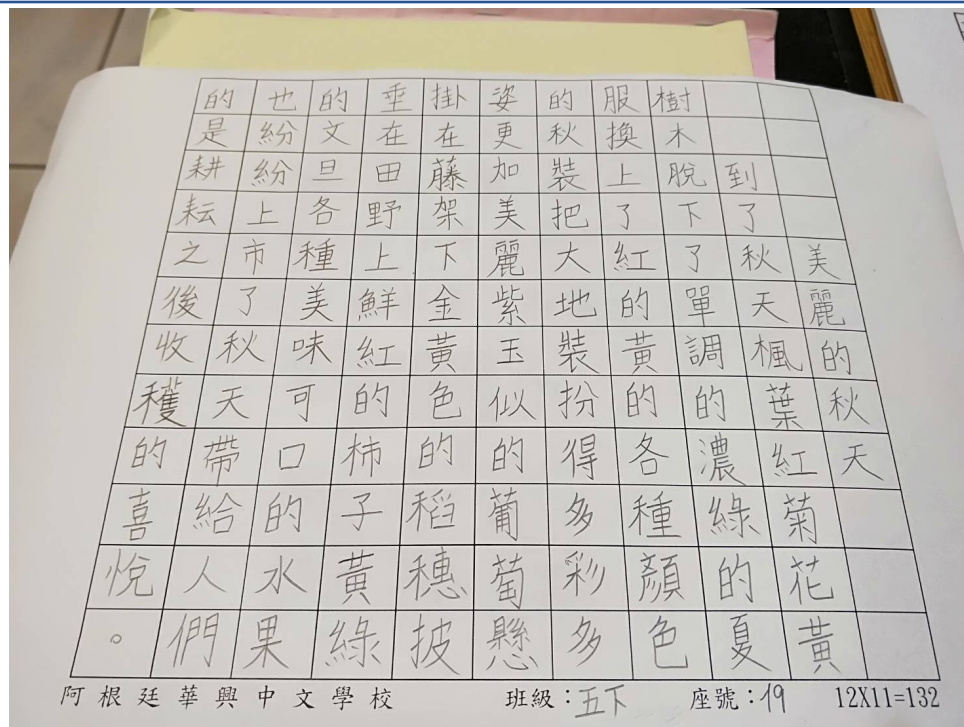 美麗的秋天
到了秋天楓葉紅菊花黃
樹木脫下了單調的濃綠的夏
服換上了紅的黃的各種顏色
的秋裝把大地裝扮得多彩多
姿更加美麗紫玉似的葡萄懸
掛在藤架下金黃色的稻穗披
垂在田野上鮮紅的柿子黃綠
的文旦各種美味可口的水果
也紛紛上市了秋天帶給人們
的是耕耘之後收穫的喜悅。
阿根廷華興中文學校 班級：五下 座號：19 12X11=132